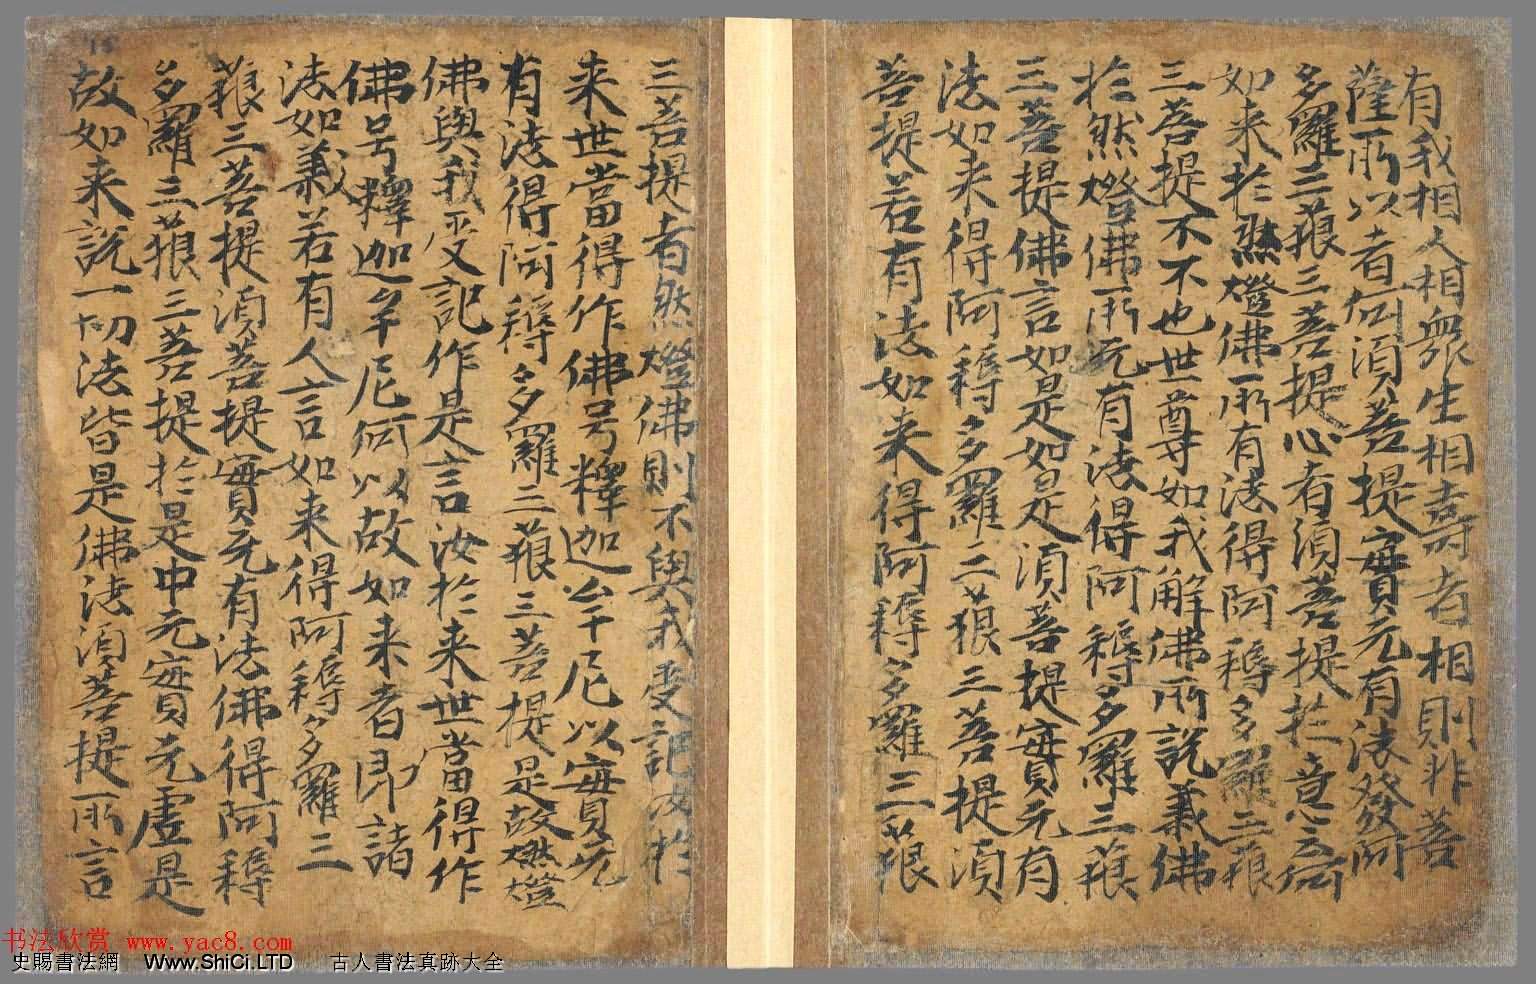 有我相人相衆生相壽者相則非菩
薩所以者何須菩提實无有法發阿
多羅三藐三菩提心者須菩提於意云何
如来於然燈佛所有法得阿耨多羅三藐
三菩提不不也世尊如我解佛所說義佛
於然燈佛所无有法得阿耨多羅三藐
三菩提佛言如是如是須菩提實无有
法如来得阿耨多羅三藐三菩提須
菩提若有法如来得阿耨多羅三藐
三菩提者然燈佛則不與我受記汝於
来世當得作佛号釋迦牟尼以實无
有法得阿耨多羅三藐三菩提是故燃燈
佛與我受記作是言汝於来世當得作
佛号釋迦牟尼何以故如来者即諸
法如義若有人言如来得阿耨多羅三
藐三菩提須菩提實无有法佛得阿耨
多羅三藐三菩提於是中无實无虛是
故如来說一切法皆是佛法須菩提所言
书法欣赏 www.yac8.com
史賜書法網 Www.ShiCi.LTD 古人書法真跡大全